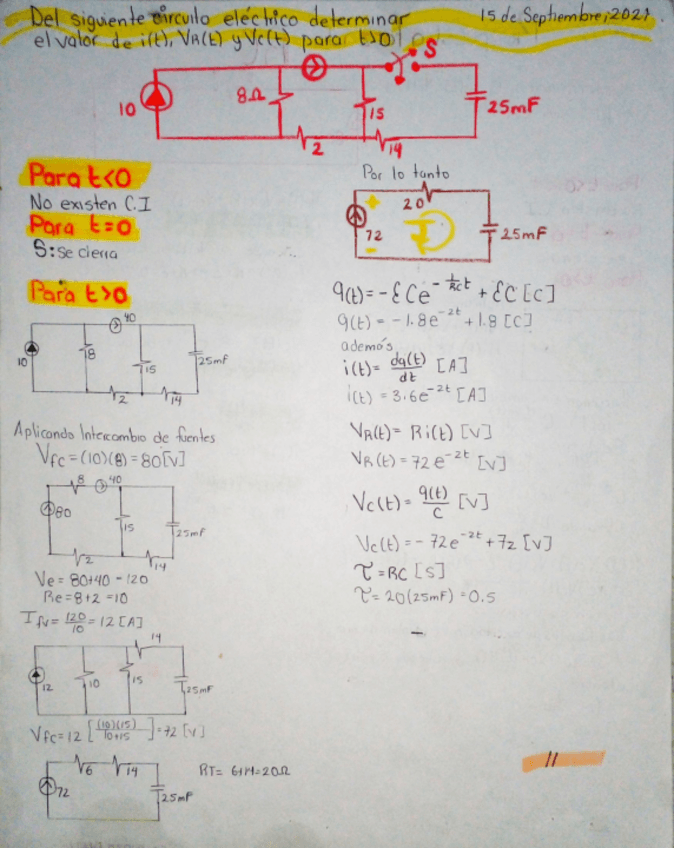 Del siguiente circuito eléctrico determinar
15 de Septiembre, 2021
el valor de i(t), VR(t) y Vc(t) para t>0
S
10
8Ω
15
25mF
2
14
Para t<0
No existen C.I
Para t=0
S: Se cierra
Para t>0
40
10
8
15
25mF
2
14
Aplicando Intercambio de fuentes
Vfc=(10)(8)=80[V]
8
40
80
15
25mF
2
14
Ve= 80+40 - 120
Re=8+2 =10
Ifv= 120/10 = 12 [A]
14
12
10
15
25mF
Vfc=12 [(10)(15)/10+15]=72 [V]
6
14
72
25mF
RT= 6+14=20Ω
Por lo tanto
20
72
I
25mF
q(t)=-ƐCe^-1/RC t + ƐC [C]
q(t)= -1.8e^-2t +1.8 [C]
además
i(t)= dq(t)/dt [A]
i(t)= 3.6e^-2t [A]
VR(t)= Ri(t) [V]
VR(t)=72e^-2t [V]
Vc(t)= q(t)/C [V]
Vc(t)=-72e^-2t+72 [V]
τ=RC [S]
τ= 20(25mF)=0.5
11